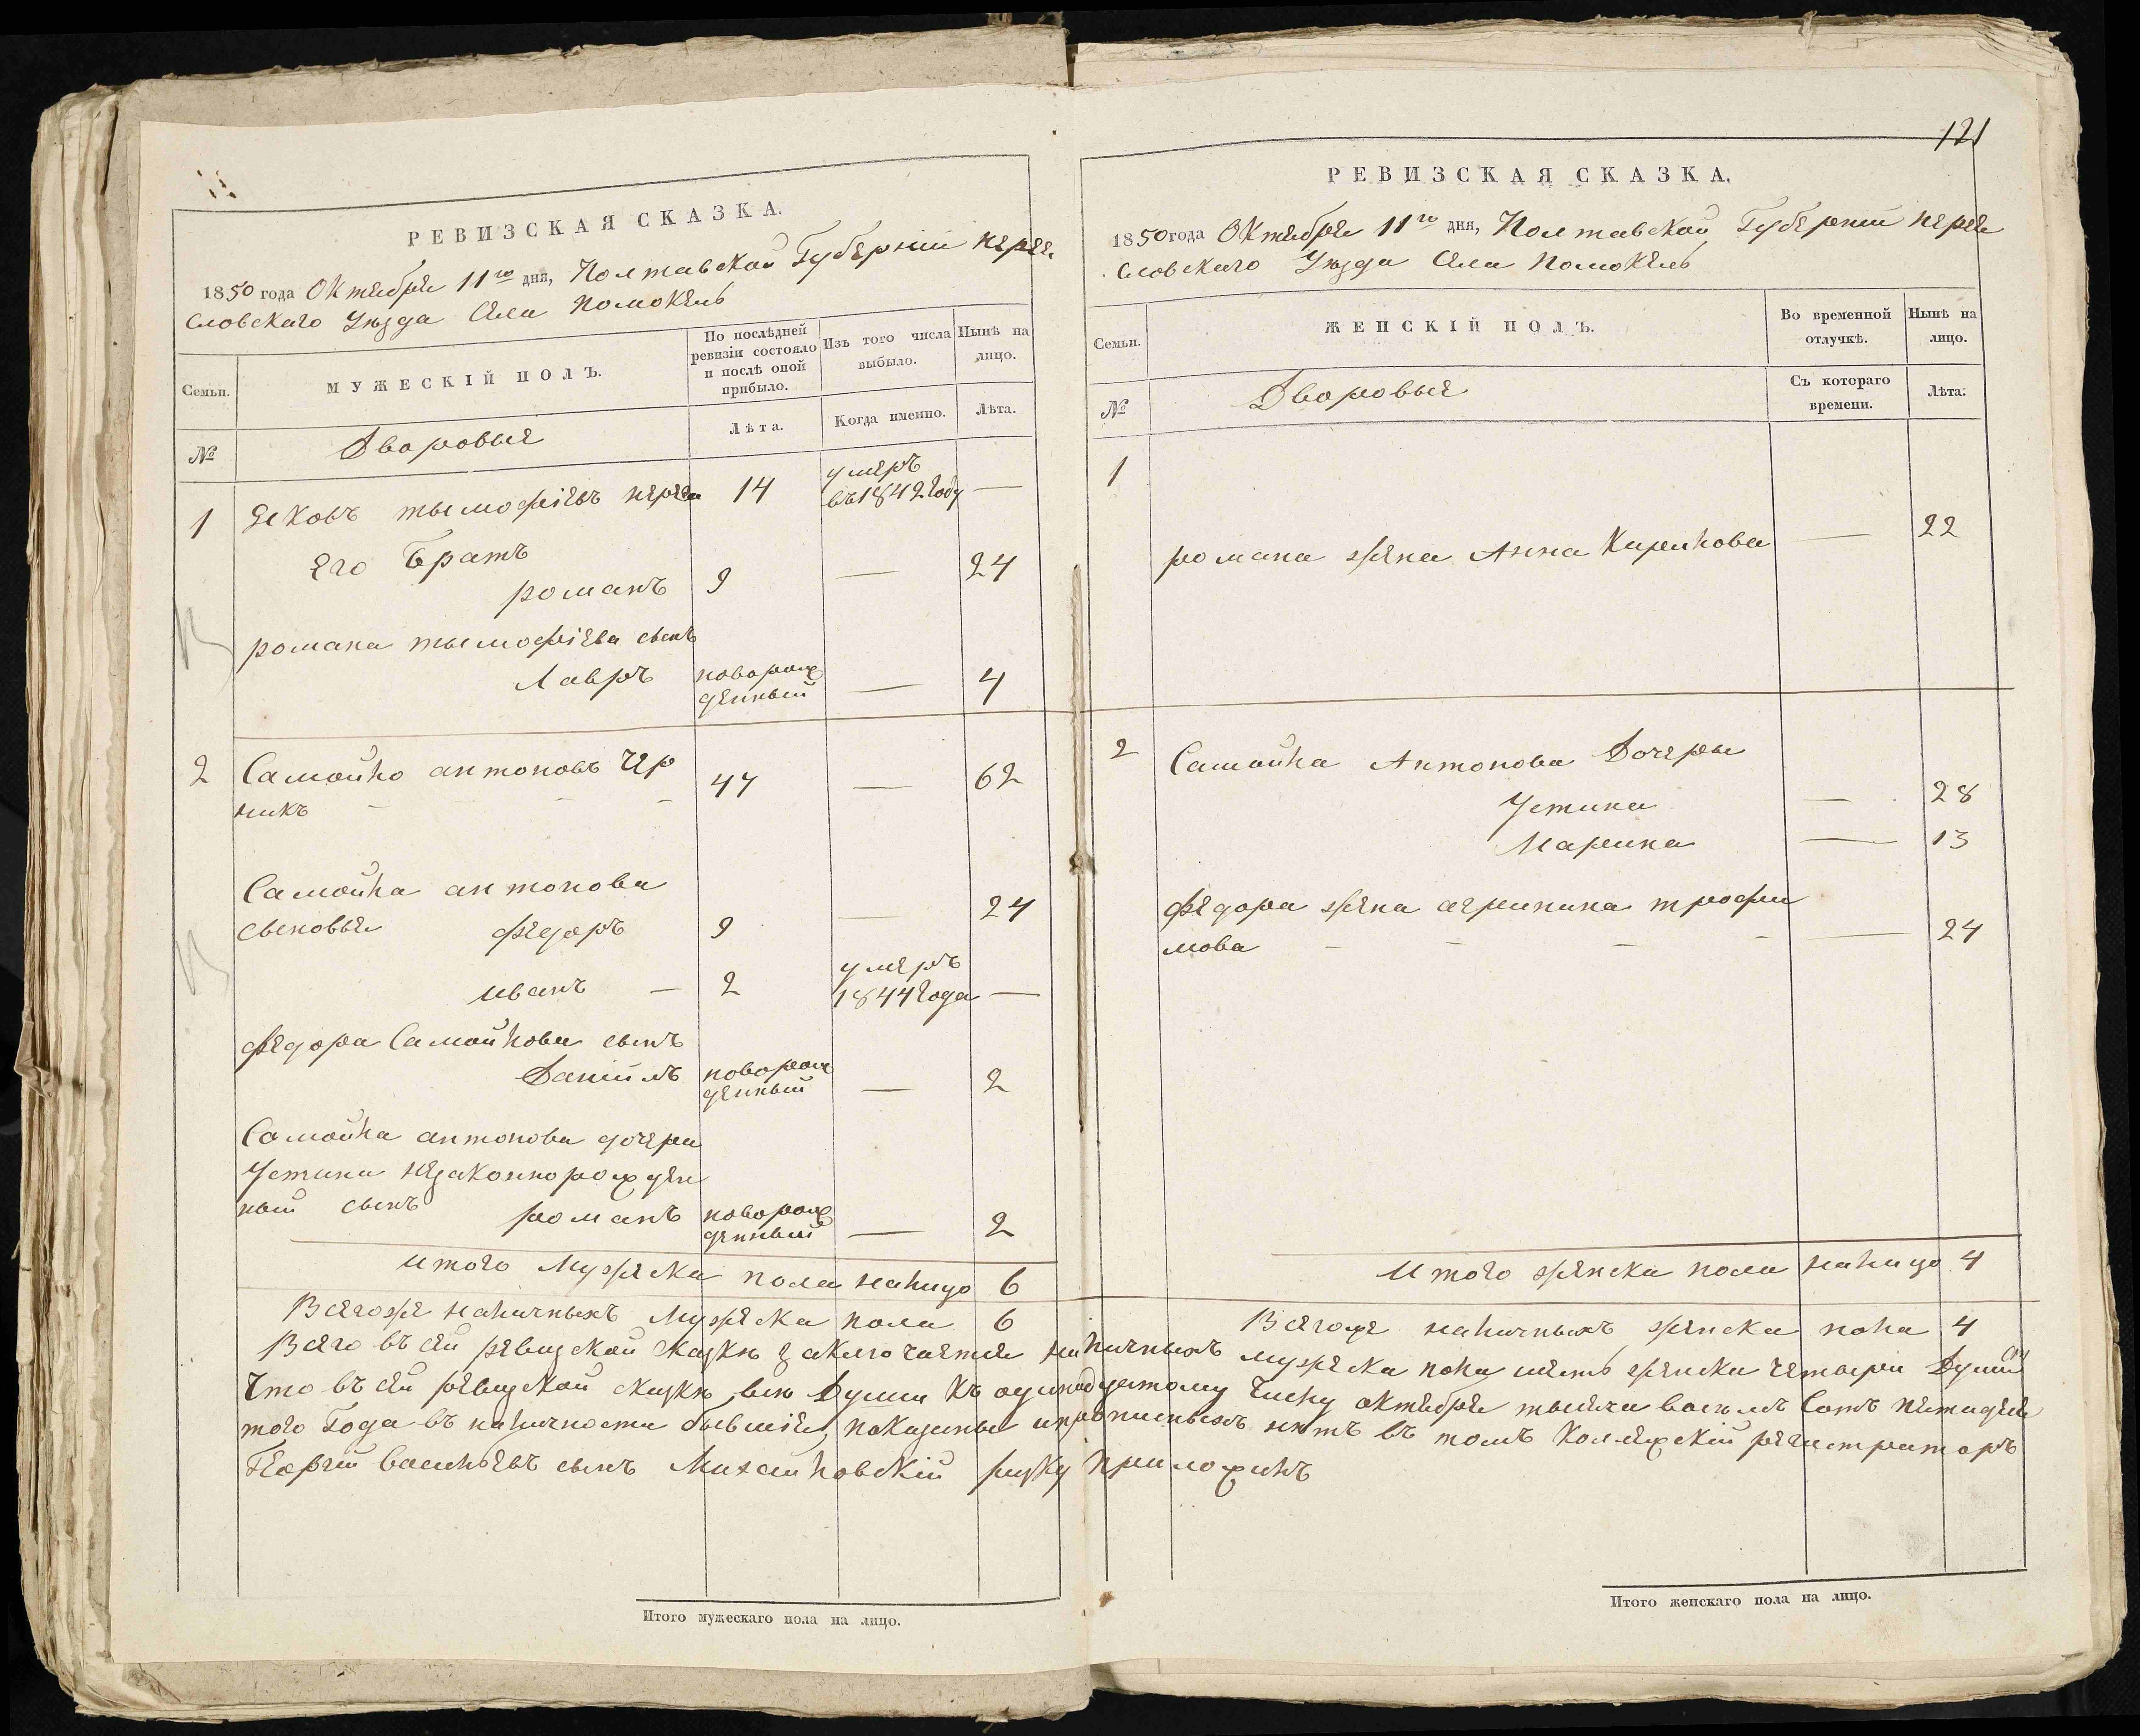 РЕВИЗСКАЯ СКАЗКА.
1850 года Октября 11го дня, Полтавской Губерніи перея
словскаго Уѣзда Села Помоклъ
Семьи.
МУЖЕСКІЙ ПОЛЪ.
По послѣдней
ревизіи состояло
и послѣ оной
прибыло.
Изъ того числа
выбыло.
Нынѣ на
лицо.
№
Дворовыя
Лѣта.
Когда именно.
Лѣта.
1 Яковъ тымофіевъ 14 умеръ
въ 1842 году —
Его Братъ
романъ 9 — 24
романа тымофіева сынъ
Лавръ новорож
денный — 4
2 Самойло антоновъ Чер
никъ - - - - 47 — 62
Самойла антонова
сыновья федоръ 9 — 24
иванъ — 2 умеръ
1844 года —
федора Самойлова сынъ
Даніилъ новорож
денный — 2
Самойла антонова дочери
Устины незаконнорожден
ный сынъ романъ новорож
денный — 2
итого Мужеска пола налицо 6
Всегоже наличныхъ Мужеска пола 6
121
РЕВИЗСКАЯ СКАЗКА.
1850 года Октября 11го дня, Полтавской Губерніи перея
словскаго Уѣзда Села Помоклъ
Семьи.
ЖЕНСКІЙ ПОЛЪ.
Во временной
отлучкѣ.
Нынѣ на
лицо.
№
Дворовыя
Съ котораго
времени.
Лѣта.
1
романа жена Анна Кирилова — 22
2 Самойла Антонова Дочеры
Устина — 28
Марина — 13
федора жена агрипина трофи
мова - - - - — 24
Итого женска пола налицо 4
Всегоже наличныхъ женска пола 4
Всего въ сей ревизской сказкѣ заключается наличныхъ мужеска пола шесть женска четыри Души
Что въ сей ревизской сказкѣ всѣ Души къ одинадцатому Числу октября тысяча восемъ Сотъ пятидеся
того Года въ наличности бывшія, показаны и прописныхъ нѣтъ въ томъ Колежскій регистраторъ
Георгій васильевъ сынъ Михайловскій руку приложилъ
Итого мужескаго пола на лицо.
Итого женскаго пола на лицо.